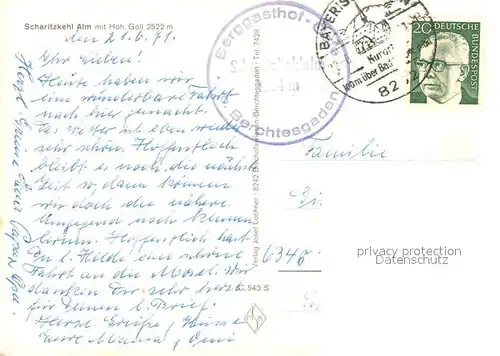 Scharitzkehl Alm mit Hoh. Göll 2522 m
den 21.6.71.
Ihr Lieben!
Heute haben wir
eine wunderbare Fahrt
nach hier gemacht.
Das Wetter ist eben wieder
sehr schön. Hoffentlich
bleibt es noch die nächste
Zeit so, dann können
wir doch die nähere
Umgegend noch kennen
lernen. Hoffentlich hast
Du l. Hilde eine schöne
Fahrt an die Mosel. Wir
danken Dir sehr herzl.
für Deinen l. Brief.
Herzl. Grüße, Küsse
Eure Mama, Omi
Herzl. Grüße Euer Papa, Opa.
Berggasthof
Berchtesgaden
Tel. 7428
Verlag Josef Lochner · 8242 Bischofswiesen-Berchtesgaden
C. 543 S
BAYERISCH
Kurort
82
20
DEUTSCHE BUNDESPOST
Familie
634
privacy protection
Datenschutz